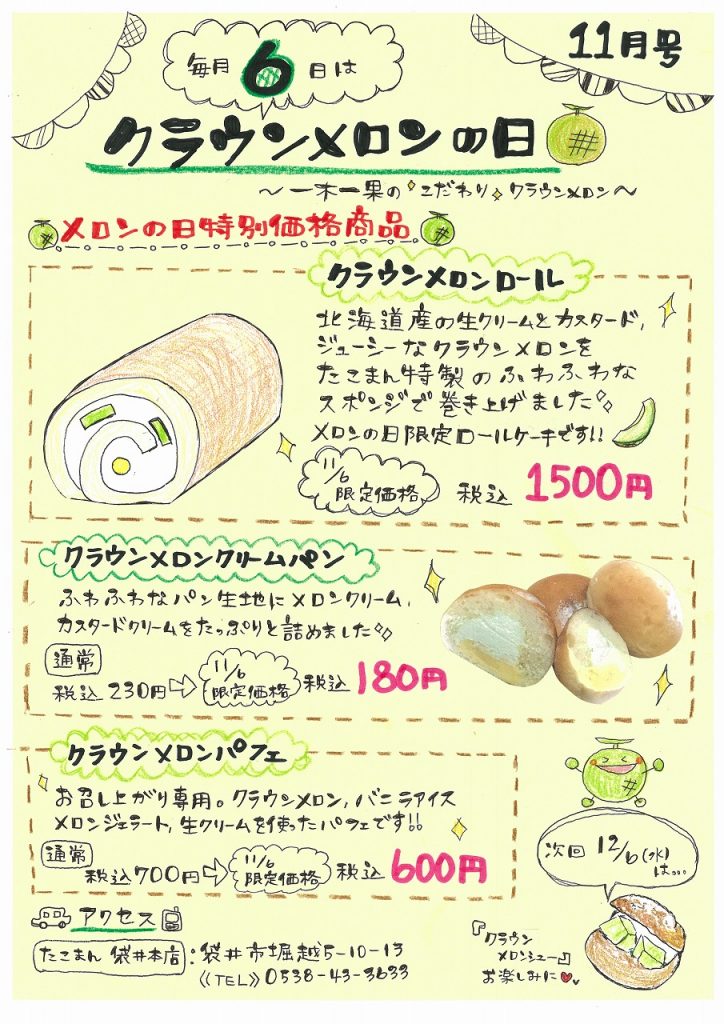 11月号
毎月6日は
クラウンメロンの日
～一木一果のこだわりクラウンメロン～
メロンの日特別価格商品
クラウンメロンロール
北海道産の生クリームとカスタード,
ジューシーなクラウンメロンを
たこまん特製のふわふわな
スポンジで巻き上げました
メロンの日限定ロールケーキです!!
11/6 限定価格 税込 1500円
クラウンメロンクリームパン
ふわふわなパン生地にメロンクリーム,
カスタードクリームをたっぷりと詰めました
通常
税込230円⇨11/6 限定価格 税込 180円
クラウンメロンパフェ
お召し上がり専用。クラウンメロン,バニラアイス
メロンジェラート,生クリームを使ったパフェです!!
通常
税込700円⇨11/6 限定価格 税込 600円
次回 12/6(水)
は...
アクセス
たこまん 袋井本店:袋井市堀越5-10-13
《TEL》0538-43-3633
『クラウン
メロンシュー』
お楽しみに